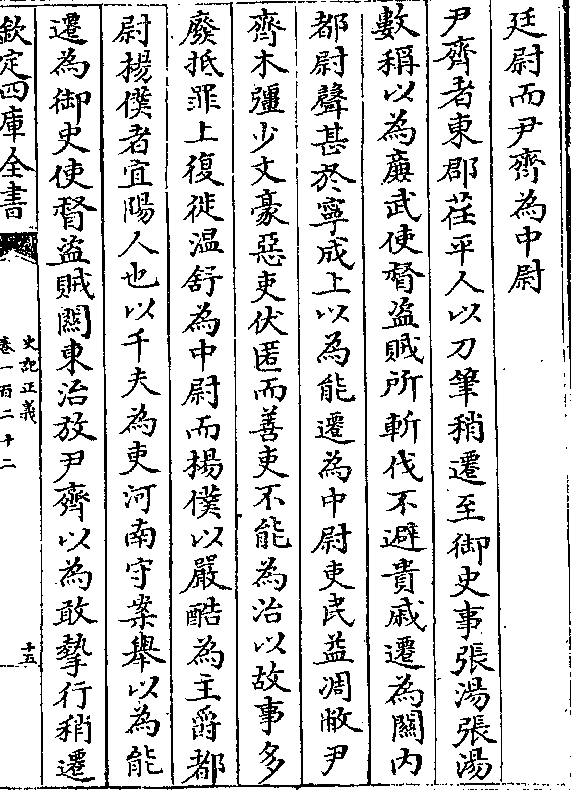 廷尉而尹齊為中尉
尹齊者東郡茌平人以刀筆稍遷至御史事張湯張湯
數稱以為廉武使督盜賊所斬伐不避貴戚遷為關内
都尉聲甚於寧成上以為能遷為中尉吏民益凋敝尹
齊木彊少文豪惡吏伏匿而善吏不能為治以故事多
廢抵罪上復徙温舒為中尉而楊僕以嚴酷為主爵都
尉楊僕者宜陽人也以千夫為吏河南守案舉以為能
遷為御史使督盜賊關東治放尹齊以為敢摯行稍遷
欽定四庫全書
史記正義
卷一百二十二
十五